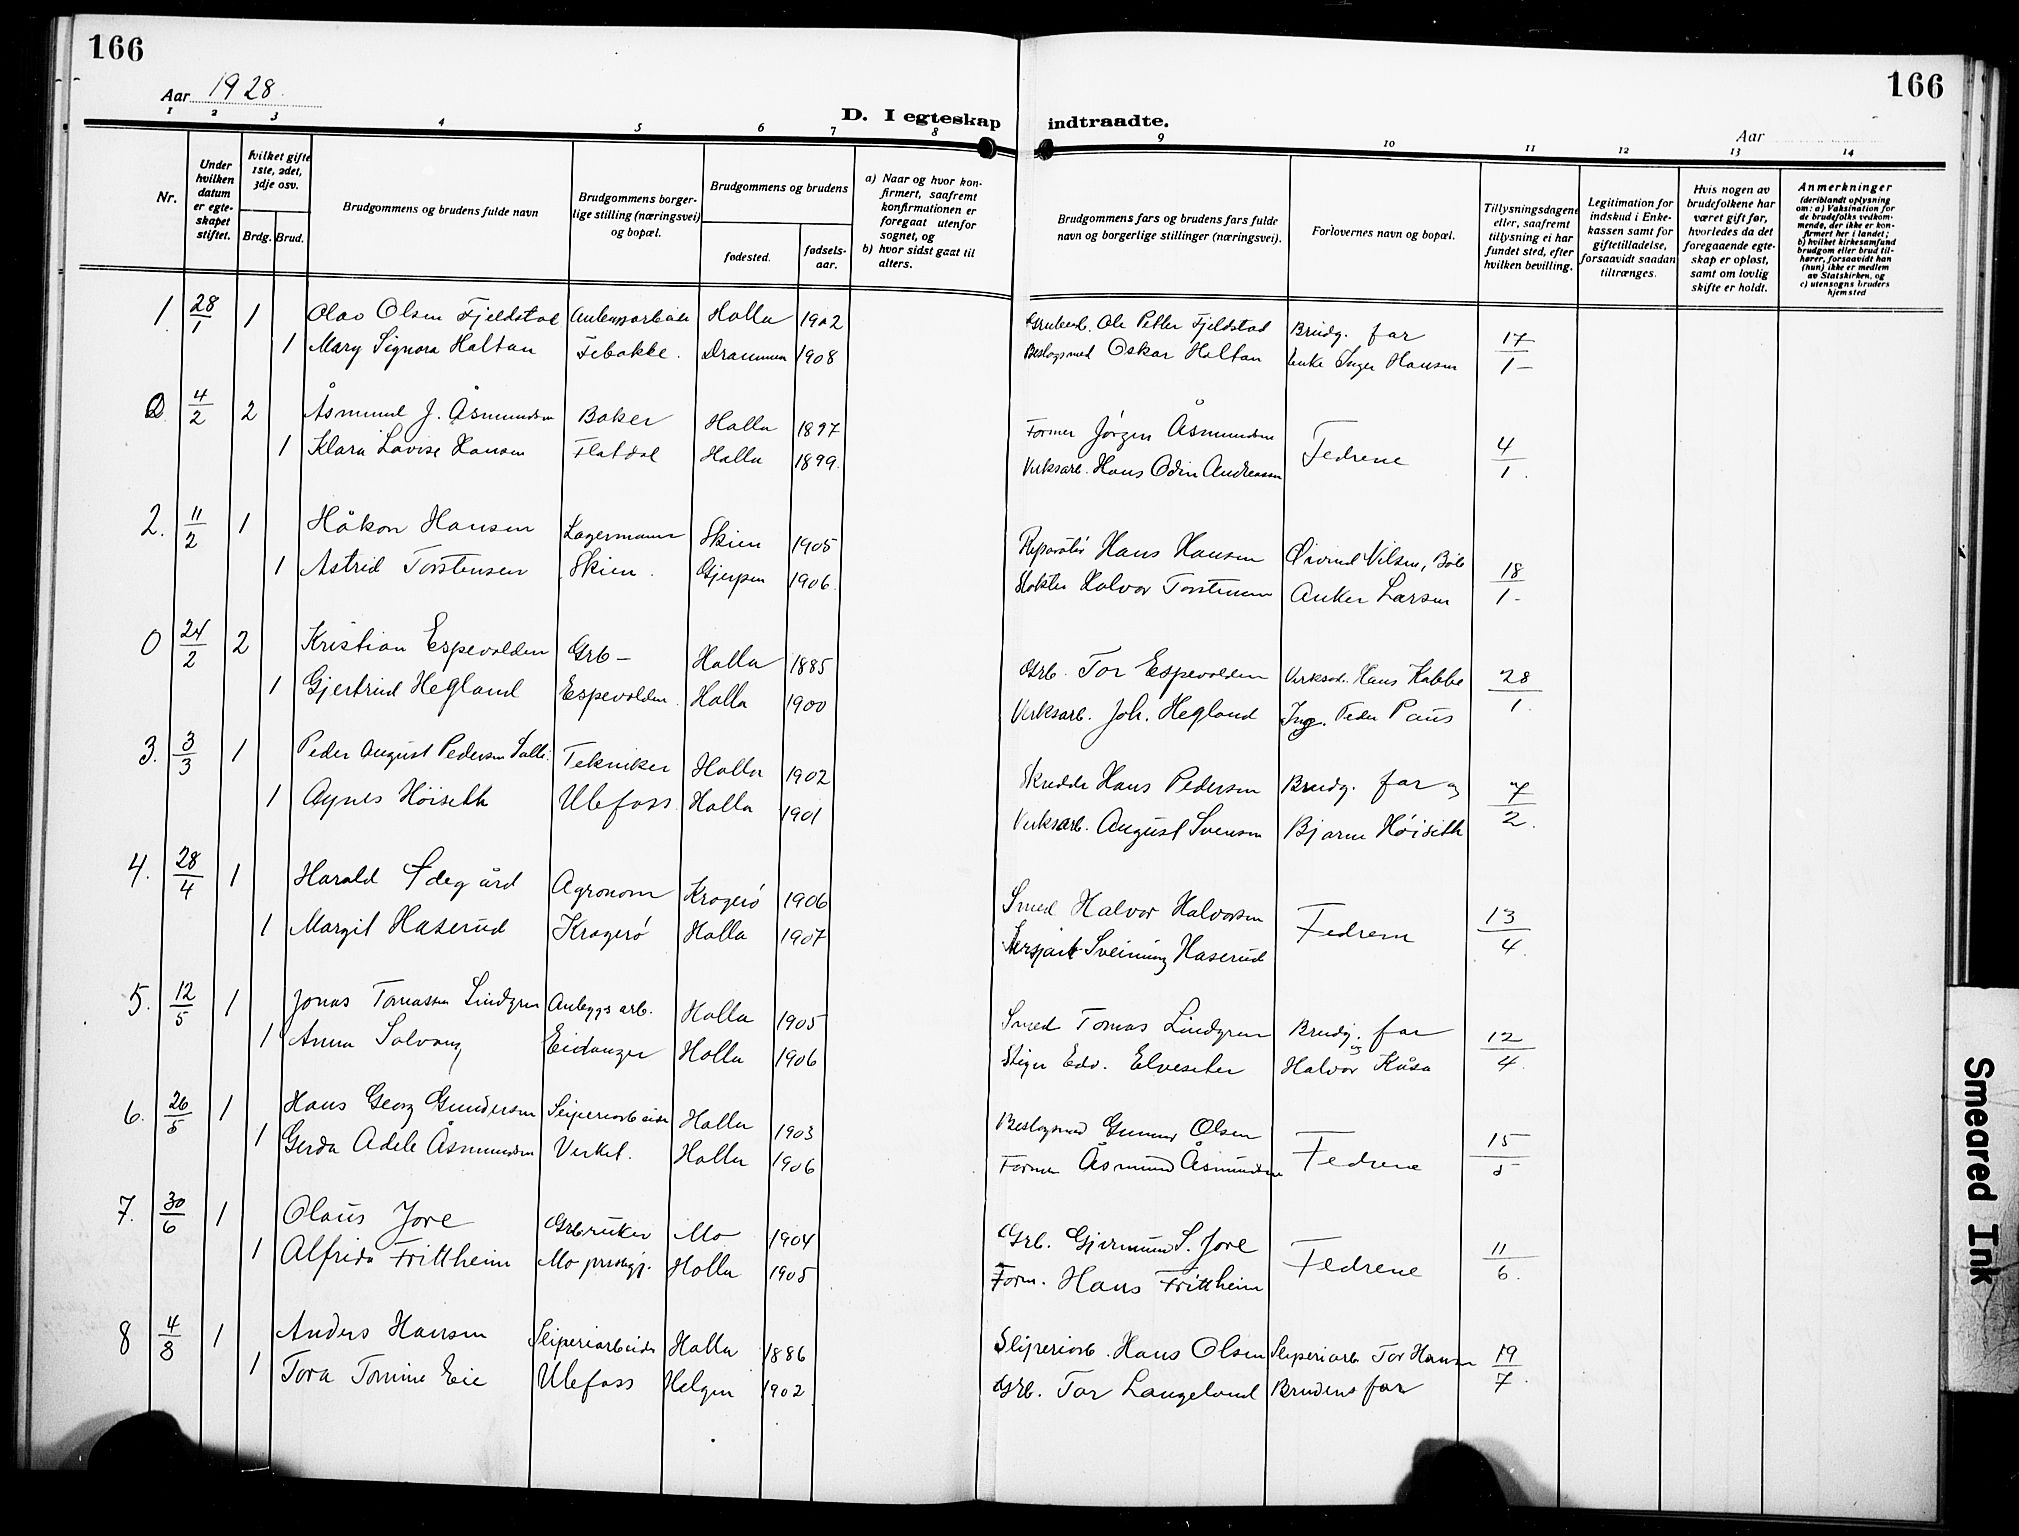 166
166
Aar 1928.
D. I egteskap indtraadte.
Aar
1 2 3 4 5 6 7 8 9 10 11 12 13 14
Nr.
Under hvilken datum er egteskapet stiftet.
hvilket gifte 1ste, 2det, 3dje osv.
Brdg. Brud.
Brudgommens og brudens fulde navn
Brudgommens borgerlige stilling (næringsvei) og bopæl.
Brudgommens og brudens
fødested.
fødselsaar.
a) Naar og hvor konfirmert, saafremt konfirmationen er foregaat utenfor sognet, og
b) hvor sidst gaat til alters.
Brudgommens fars og brudens fars fulde navn og borgerlige stillinger (næringsvei).
Forlovernes navn og bopæl.
Tillysningsdagene eller, saafremt tillysning ei har fundet sted, efter hvilken bevilling.
Legitimation for indskud i Enkekassen samt for giftetilladelse, forsaavidt saadan tiltrænges.
Hvis nogen av brudefolkene har været gift før, hvorledes da det foregaaende egteskap er opløst, samt om lovlig skifte er holdt.
Anmerkninger (deriblandt oplysning om: a) Vaksination for de brudefolks vedkommende, der ikke er konfirmert her i landet; b) hvilket kirkesamfund brudgom eller brud tilhører, forsaavidt han (hun) ikke er medlem av Statskirken, og c) utensogns bruders hjemsted
1. 28/1 1 Olav Olsen Fjeldstad Anlegsarbeider Holla 1902 Grubearb. Ole Petter Fjeldstad Brudg. far 17/1 -
1 Mary Signora Holtan Febakke. Drammen 1908 Beslagsmed Oskar Holtan Enke Inger Hansen
2 4/2 2 Åsmund J. Åsmundsen Baker Holla 1897 Former Jørgen Åsmundsen Fedrene 4/1.
1 Klara Lovise Hansen Flatdal Holla 1899. Verksarb. Hans Odin Andreassen
2. 11/2 1 Håkon Hansen Lagermann Skien 1905 Reparatør Hans Hansen Øivind Nilsen, Bøle 18/1 -
1 Astrid Torstensen Skien. Gjerpen 1906 Halvor Torstensen Anker Larsen
0 24/2 2 Kristian Espevolden Grb - Holla 1885 Grb. Tor Espevolden Verksarb. Hans Kabbe 28/1.
1 Gjertrud Hegland Espevolden. Holla 1900 Verksarb. Joh. Hegland Ing. Peder Paus
3. 3/3 1 Peder August Pedersen Tekniker Holla 1902 Skredder Hans Pedersen Brudg. far og 7/2.
1 Agnes Høiseth Ulefoss. Holla 1901 Verksarb. August Svensen Bjarne Høiseth
4. 28/4 1 Harald Ødegård Agronom Kragerø 1906 Smed Halvor Halvorsen Fedrene 13/4.
1 Margit Haserud Kragerø Holla 1907 Sveinung Haserud
5. 12/5 1 Jonas Tomassen Lindgren Anleggsarb. Holla 1905 Smed Tomas Lindgren Brudg. far og 12/4.
1 Anna Solvang Eidanger Holla 1906 Stiger Edv. Elveseter Halvor Kåsa
6. 26/5 1 Hans Georg Gundersen Sliperiarbeider Holla 1903 Beslagsmed Gunnar Olsen Fedrene 15/5
1 Gerda Adele Åsmundsen Verket. Holla 1906 Former Åsmund Åsmundsen
7. 30/6 1 Olaus Jore Grbruker Mo 1904 Grb. Gjermund S. Jore Fedrene 11/6.
1 Alfrida Frittheim Mo prestegj. Holla 1905 Form. Hans Frittheim
8 4/8 1 Anders Hansen Sliperiarbeider Holla 1886 Sliperiarb. Hans Olsen Sliperiarb Tor Hansen 19/7.
1 Tora Tomine Eie Ulefoss Helgen 1902 Grb. Tor Langeland Brudens far
Smeared Ink